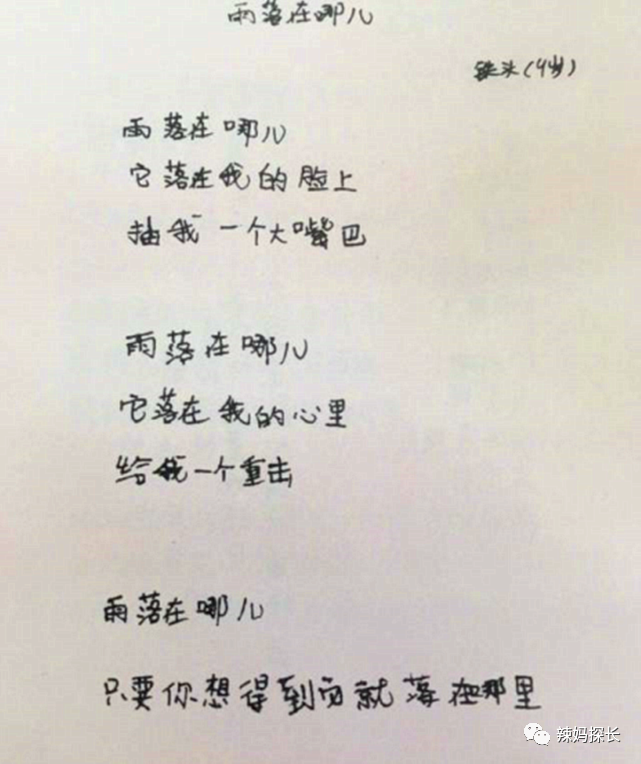 雨落在哪儿
铁头(4岁)
雨落在哪儿
它落在我的脸上
抽我一个大嘴巴
雨落在哪儿
它落在我的心里
给我一个重击
雨落在哪儿
只要你想得到雨就落在那里
辣妈探长